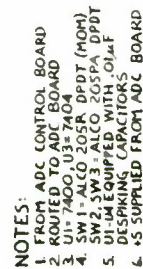 NOTES:
1. FROM ADC CONTROL BOARD
2. ROUTED TO ADC BOARD
3. U1= 7400, U3= 7404
4. SW1= ALCO 205R DPDT (MOM)
SW2, SW3= ALCO 205PA DPDT
5. U1-U4 EQUIPPED WITH .01µF
DESPIKING CAPACITORS
6. +5 SUPPLIED FROM ADC BOARD